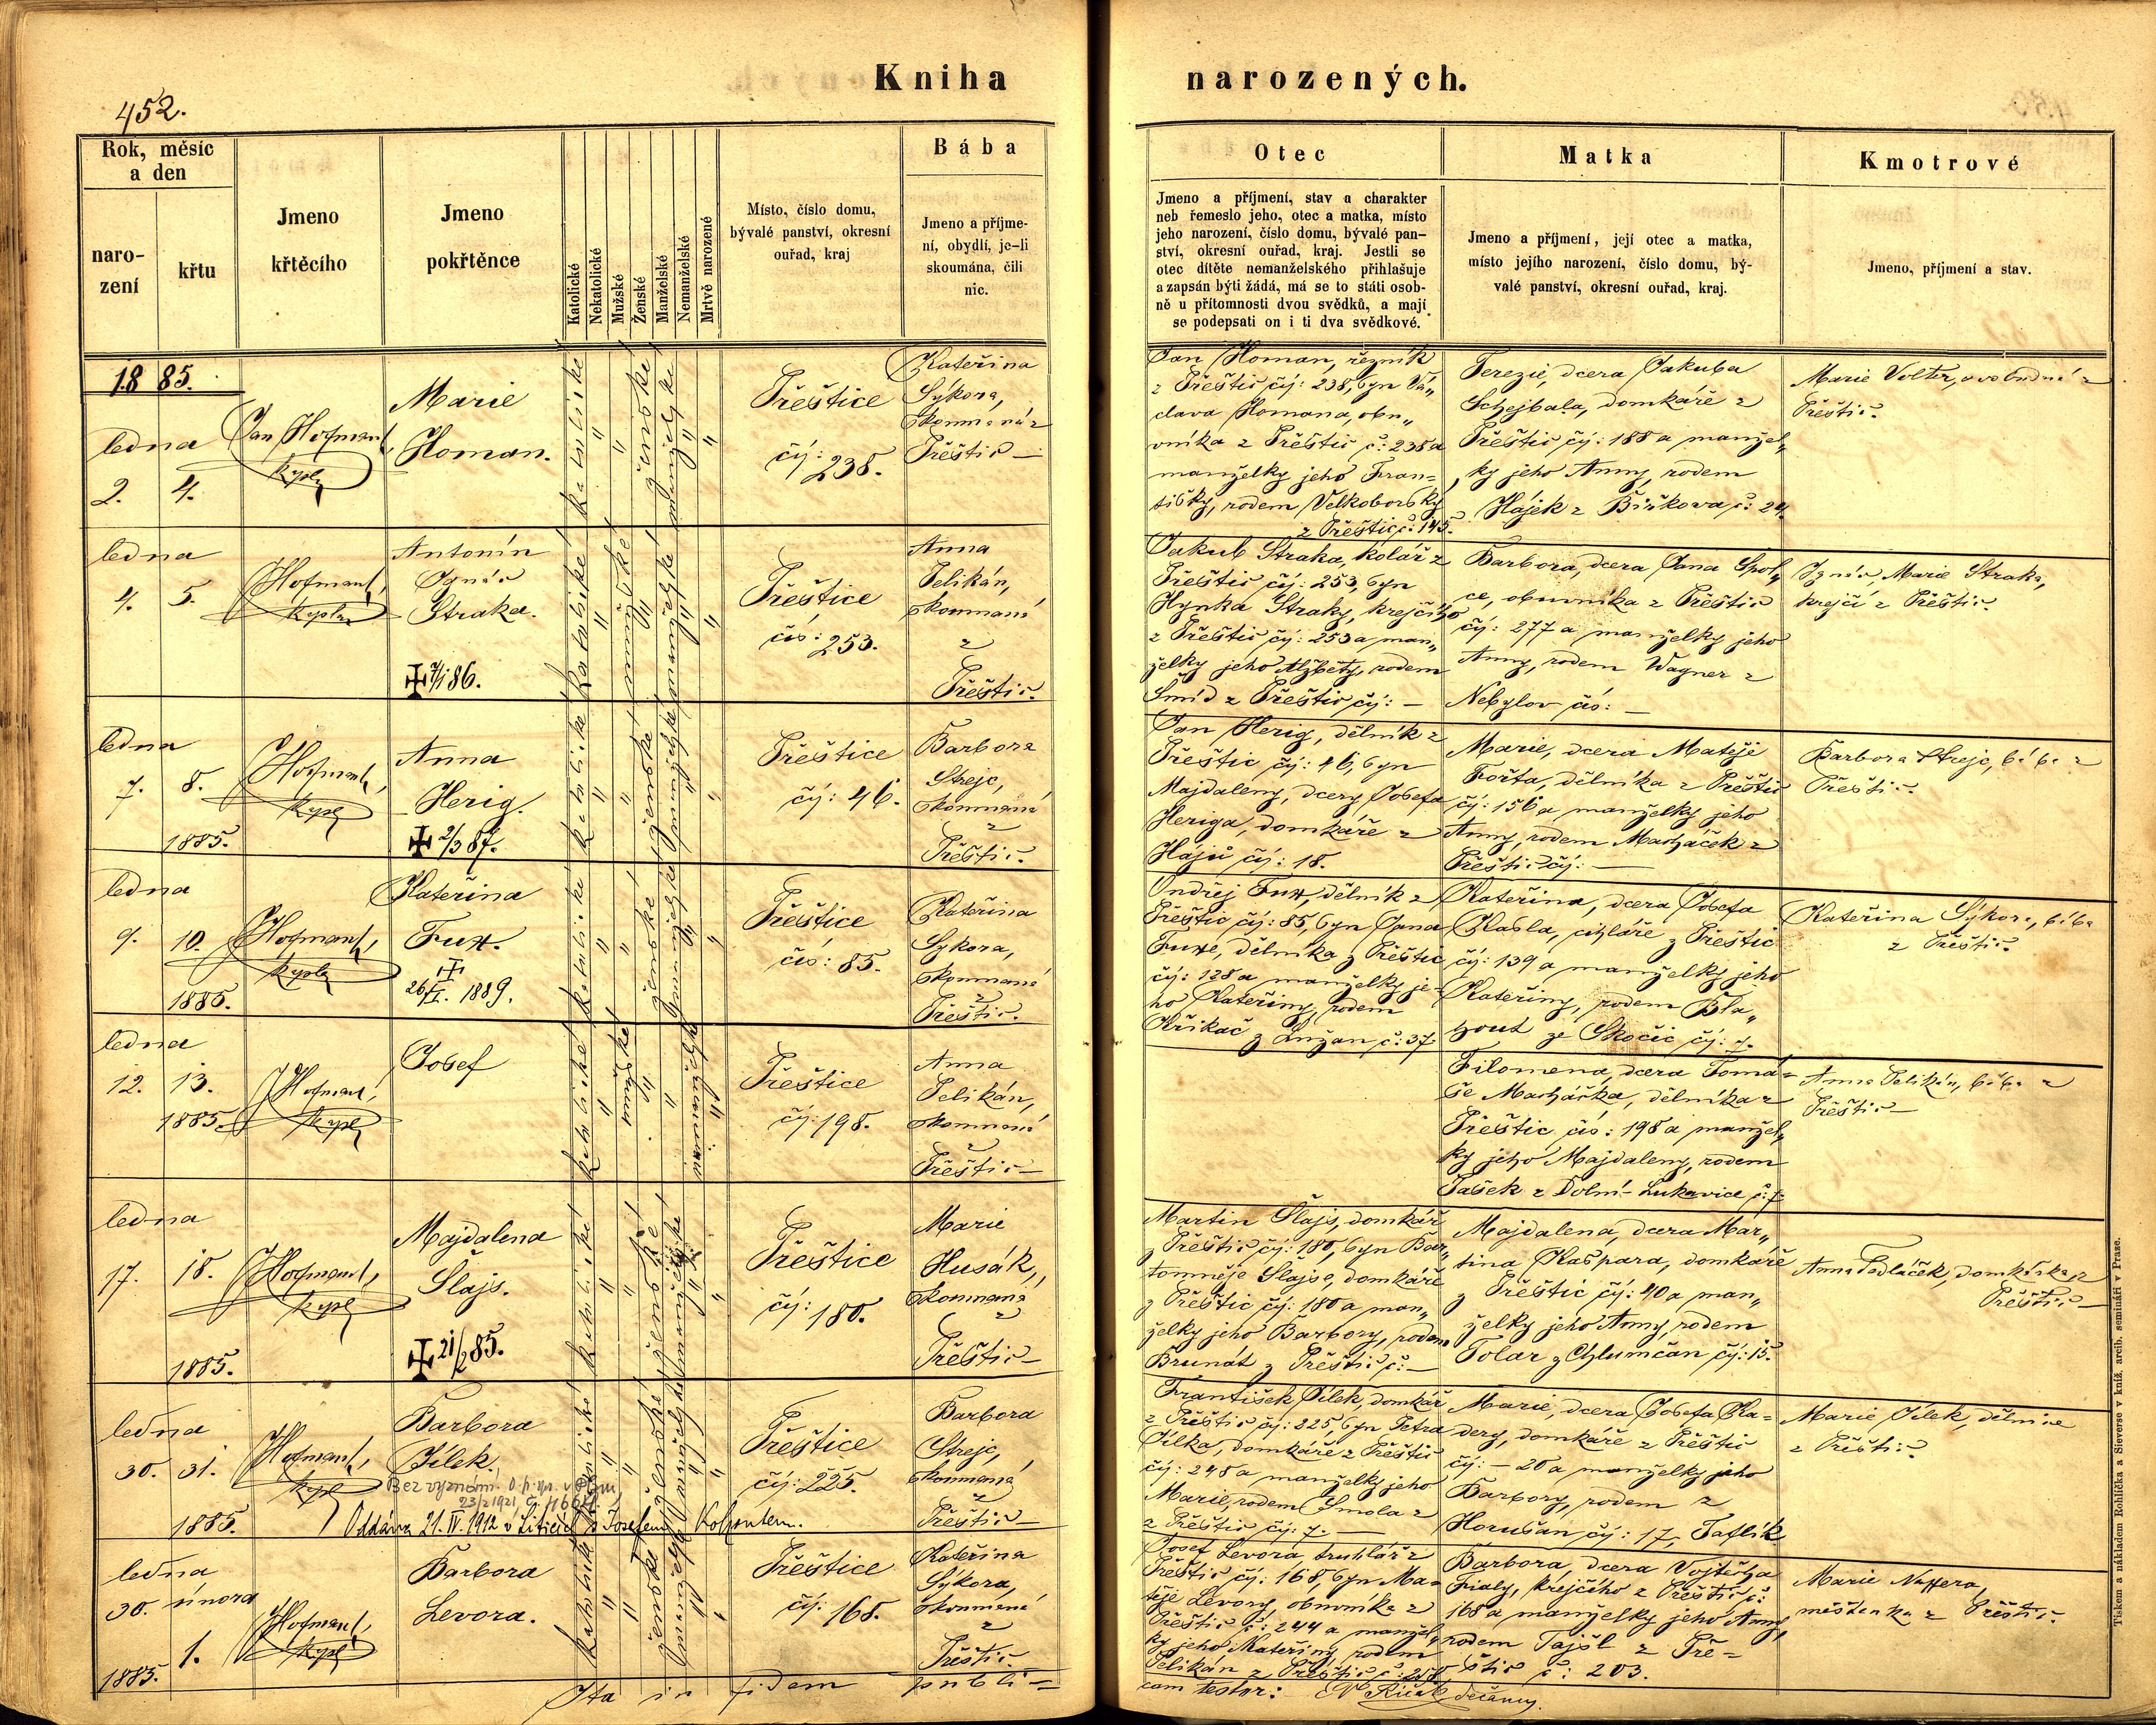 Kniha narozených.
452.
Rok, měsíc a den
naro-
zení
křtu
Jmeno
křtěcího
Jmeno
pokřtěnce
Katolické
Nekatolické
Mužské
Ženské
Manželské
Nemanželské
Mrtvě narozené
Místo, číslo domu,
bývalé panství, okresní
ouřad, kraj
Bába
Jmeno a příjme-
ní, obydlí, je-li
skoumána, čili
nic.
Otec
Jmeno a příjmení, stav a charakter
neb řemeslo jeho, otec a matka, místo
jeho narození, číslo domu, bývalé pan-
ství, okresní ouřad, kraj. Jestli se
otec dítěte nemanželského přihlašuje
a zapsán býti žádá, má se to státi osob-
ně u přítomnosti dvou svědků, a mají
se podepsati on i ti dva svědkové.
Matka
Jmeno a příjmení, její otec a matka,
místo jejího narození, číslo domu, bý-
valé panství, okresní ouřad, kraj.
Kmotrové
Jmeno, příjmení a stav.
1885.
ledna
2. 4.
Jan Hofmant,
kapl
Marie
Homan.
katolické
ženské
manželské
Přeštice
čís: 238.
Kateřina
Sýkora,
skoumaná z
Přeštic —
Jan Homan, řezník
z Přeštic čís: 238, syn Vá„
clava Homana, obu„
vníka z Přeštic č: 238 a
manželky jeho Fran=
tišky, rodem Velkoborský
z Přeštic č: 145.
Terezie, dcera Jakuba
Schejbala, domkáře z
Přeštic čís: 188 a manžel„
ky jeho Anny, rodem
Hájek z Bíškova č: 24.
Marie Volter, svobodná z
Přeštic.
ledna
4. 5.
Hofmant,
kaplan
Antonín
Ignác
Straka.
✠ 7/1 86.
katolické
mužské
manželské
Přeštice
čís: 253.
Anna
Pelikán,
skoumaná
z
Přeštic.
Jakub Straka, kolář z
Přeštic čís: 253, syn
Hynka Straky, krejčího
z Přeštic čís: 253 a man„
želky jeho Alžběty, rodem
Šmíd z Přeštic čís: —
Barbora, dcera Jana Spol„
ce, obuvníka z Přeštic
čís: 277 a manželky jeho
Anny, rodem Wagner z
Nebylov čís: —
Ignác, Marie Straka,
krejčí z Přeštic.
ledna
7. 8.
1885.
Hofmant,
kapl
Anna
Herig.
✠ 2/3 87.
katolické
ženské
nemanželské
Přeštice
čís: 46.
Barbora
Strejc,
skoumaná
z
Přeštic.
Jan Herig, dělník z
Přeštic čís: 46, syn
Majdaleny, dcery Josefa
Heriga, domkáře z
Hájů čís: 18.
Marie, dcera Matěje
Fořta, dělníka z Přeštic
čís: 156 a manželky jeho
Anny, rodem Macháček z
Přeštic čís: —
Barbora Strejc, bába z
Přeštic.
ledna
9. 10.
1885.
Hofmant,
kapl
Kateřina
Fux.
✠
26/II. 1889.
katolické
ženské
manželské
Přeštice
čís: 85.
Kateřina
Sykora,
skoumaná
z
Přeštic.
Ondřej Fux, dělník z
Přeštic čís: 85, syn Jana
Fuxe, dělníka z Přeštic
čís: 128 a manželky je-
ho Kateřiny, rodem
Křikač z Lužan č: 37.
Kateřina, dcera Josefa
Kabla, cihláře z Přeštic
čís: 139 a manželky jeho
Kateřiny, rodem Bla„
hout ze Skočic čís: 7.
Kateřina Sýkora, bába
z Přeštic.
ledna
12. 13.
1885.
Hofmant,
kapl
Josef
katolické
mužské
nemanželské
Přeštice
čís: 198.
Anna
Pelikán,
skoumaná
z
Přeštic —
Filomena, dcera Tomá=
še Macháčka, dělníka z
Přeštic čís: 198 a manžel„
ky jeho Majdaleny, rodem
Pašek z Dolní-Lukavice č: 7.
Anna Pelikán, bába z
Přeštic —
ledna
17. 18.
1885.
Hofmant,
kapl
Majdalena
Šlajs.
✠ 21/2 85.
katolické
ženské
manželské
Přeštice
čís: 180.
Marie
Husák,
skoumaná
z
Přeštic —
Martin Šlajs, domkář
z Přeštic čís: 180, syn Bar„
toměje Šlajse, domkáře
z Přeštic čís: 180 a man„
želky jeho Barbory, rodem
Brunát z Přeštic č: —
Majdalena, dcera Mar„
tina Kašpara, domkáře
z Přeštic čís: 40 a man„
želky jeho Anny, rodem
Tolar z Chlumčan čís: 15.
Anna Sedláček, domkářka z
Přeštic —
ledna
30. 31.
1885.
Hofmant,
kapl
Barbora
Jílek.
Bez vyznání. O. p. sp. v Plzni
23/2 1921, č. 11664.
Oddána 21. IV. 1912 v Liticích s Josefem
katolické
ženské
manželské
Přeštice
čís: 225.
Barbora
Strejc,
skoumaná
z
Přeštic —
František Jílek, domkář
z Přeštic čís: 225, syn Petra
Jílka, domkáře z Přeštic
čís: 248 a manželky jeho
Marie, rodem Smola z
z Přeštic čís: 7. —
Marie, dcera Josefa Ka=
dery, domkáře z Přeštic
čís: — 20 a manželky jeho
Barbory, rodem z
Horušan čís: 17, Taflík
Marie Jílek, dělnice
z Přeštic
ledna
30. února
1.
1885.
Hofmant,
kapl
Barbora
Levora.
katolické
ženské
manželské
Přeštice
čís: 168.
Kateřina
Sýkora,
skoumaná
z
Přeštic
Josef Levora, truhlář z
Přeštic čís: 168, syn Ma=
těje Levory, obuvníka z
Přeštic č: 244 a manžel„
ky jeho Kateřiny, rodem
Pelikán z Přeštic č: 258
Barbora, dcera Vojtěcha
Fialy, krejčího z Přeštic č:
168 a manželky jeho Anny,
rodem Tajšl z Pře=
štic č: 203.
Marie
měšťanka z Přeštic.
Ita in fidem publi=
cam testor: děkanný.
Tiskem a nákladem Rohlíčka a Sieverse v kníž. arcib. semináři v Praze.